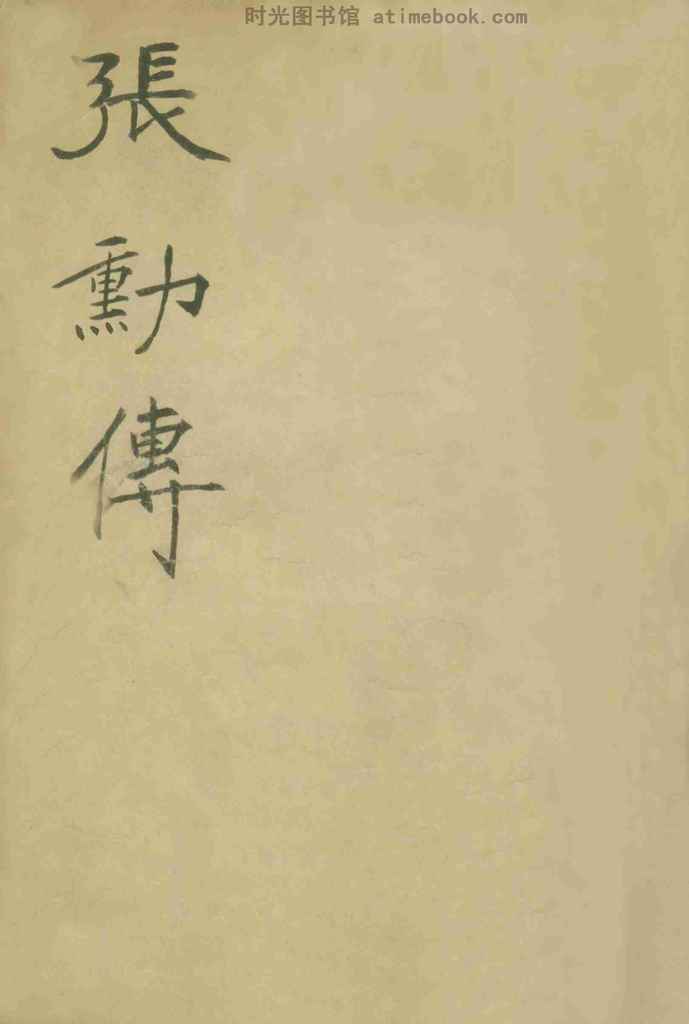 时光图书馆 atimebook.com
張勳傳